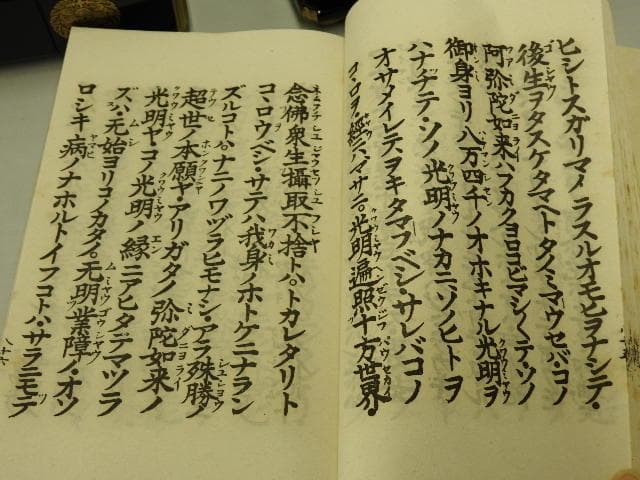 ヒシトスガリマイラスルオモヒヲナシテ・
後生ヲタスケタマヘトタノミマウセバ・コノ
阿弥陀如来ハフカクヨロコビマシ〱テ・ソノ
御身ヨリ八万四千ノオホキナル光明ヲ
ハナヂテ・ソノ光明ノナカニ・ソノヒトヲ
オサメイレテ・ヲキタマフベシ・サレバコノ
コヽロヲ・經ニハ・マサニ・光明遍照十方世界・
念佛衆生攝取不捨トハ・トカレタリト
コヽロウベシ・サテハ我身ノホトケニナラン
ズルコトハ・ナニノワヅラヒモナシ・アラ殊勝ノ
超世ノ本願ヤ・アリガタノ弥陀如来ノ
光明ヤ・コノ光明ノ縁ニアヒタテマツラ
ズハ・无始ヨリコノカタノ・无明業障ノ・オソ
ロシキ病ノナホルトイフコトハ・サラニモテ